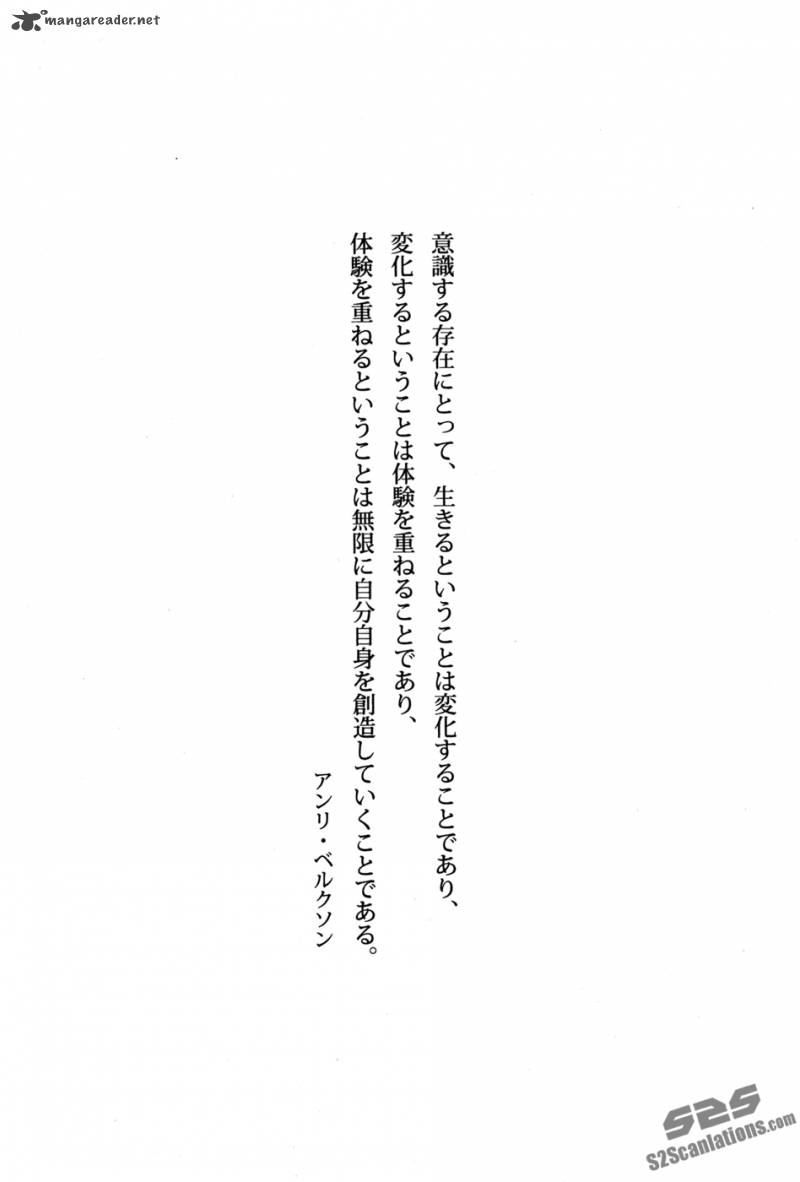 mangareader.net
意識する存在にとって、生きるということは変化することであり、
変化するということは体験を重ねることであり、
体験を重ねるということは無限に自分自身を創造していくことである。
アンリ・ベルクソン
S2S
S2Scanlations.com